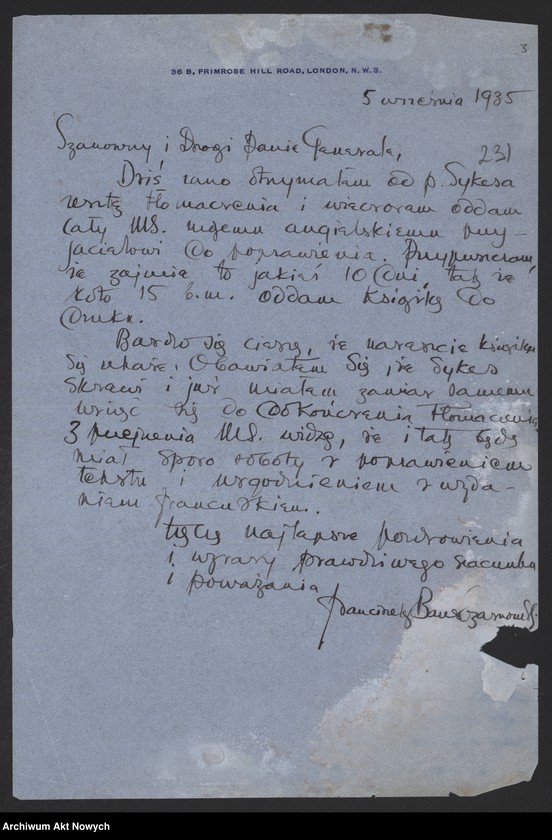 3
36 B, PRIMROSE HILL ROAD, LONDON, N.W.3.
5 września 1935
231
Szanowny i Drogi Panie Generale,
Dziś rano otrzymałem od p. Sykesa
resztę tłomaczenia i wieczorem oddam
cały MS. mojemu angielskiemu przy-
jacielowi do poprawienia. Przypuszczam
że zajmie to jakieś 10 dni, tak że
koło 15 b.m. oddam książkę do
druku.
Bardzo się cieszę, że nareszcie książka
się ukaże. Obawiałem się, że Sykes
skrewi i już miałem zamiar samemu
wziąć się do dokończenia tłomaczenia
Z przejrzenia MS. widzę, że i tak będę
miał sporo roboty z poprawieniem
tekstu i uzgodnieniem z wyda-
niem francuskiem.
Łączę najlepsze pozdrowienia
i wyrazy prawdziwego szacunku
i poważania
Franciszek
Archiwum Akt Nowych